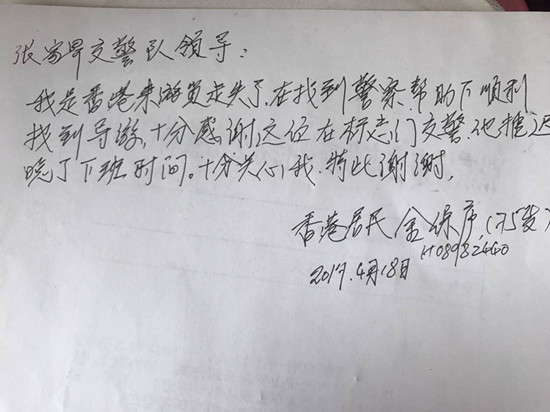 张家界交警队领导：
我是香港来游览走失了，在找到警察帮助下顺利
找到导游，十分感谢这位在标志门交警他推迟
晚了下班时间。十分关心我，特此谢谢，
香港居民 金保序，(75岁)
H08982440
2017.4月18日